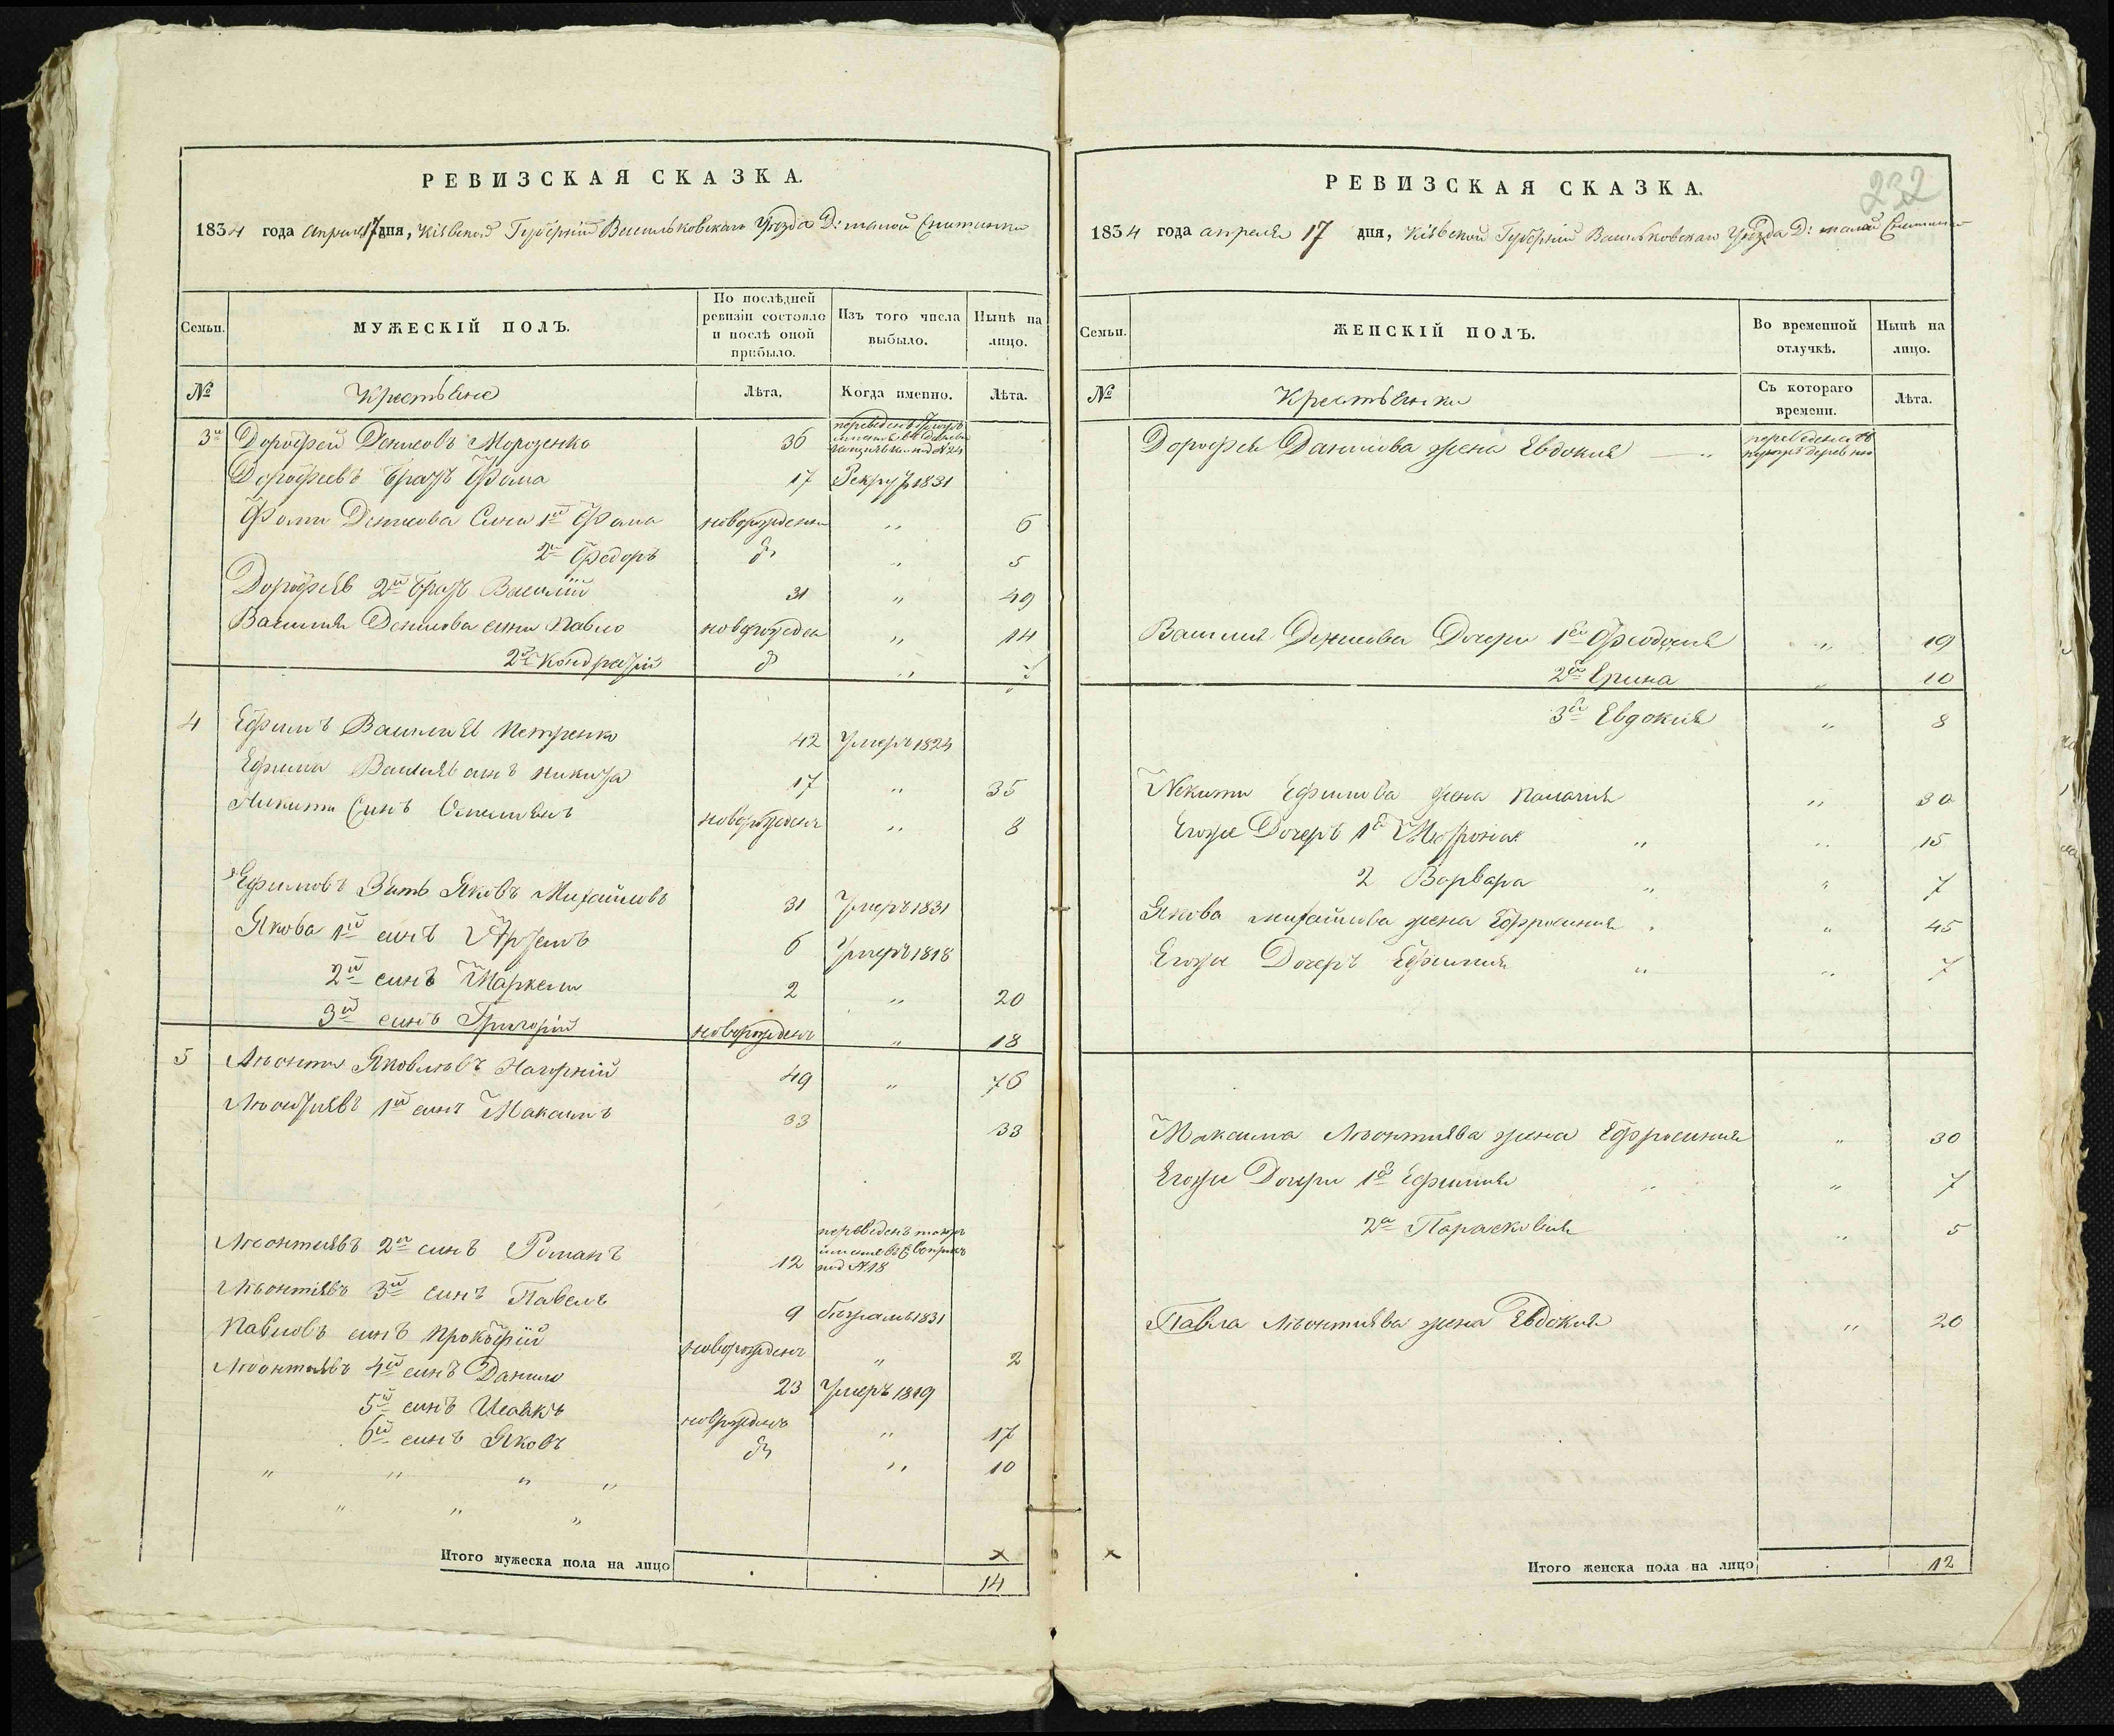 РЕВИЗСКАЯ СКАЗКА.
1834 года апреля 17 дня, Кіѣвской Губерніи Васильковскаго Уѣзда Д: малой Снитинки
Семьи.
МУЖЕСКІЙ ПОЛЪ.
По послѣдней ревизіи состояло и послѣ оной прибыло.
Изъ того числа выбыло.
Нынѣ на лицо.
№
Крестьяне
Лѣта.
Когда именно.
Лѣта.
3й Дорофей Денисовъ Морозенко 36 переведенъ под №24
Дорофеевъ братъ Фома 17 Рекрут 1831
Фомы Денисова Сини 1й Фома новорожденн „ 6
2й Федоръ д „ 5
Дорофѣевъ 2й братъ Василій 31 „ 49
Василия Денисова сини Павло новорожден „ 14
2й Кондратій д „ 7
4 Ефимъ Василиев Петренко 42 Умеръ 1824
Ефима Василиев синъ Никита 17 „ 35
Никиты Синъ Омелиянъ новорожденъ „ 8
Ефимовъ Зять Яковъ Михайловъ 31 Умеръ 1831
Якова 1й синъ Артемъ 6 Умеръ 1818
2й синъ Маркели 2 „ 20
3й синъ Григорій новорожденъ „ 18
5 Лѣонтий Яковлѣвъ Нагорній 49 „ 76
Лѣонтиевъ 1й синъ Максимъ 33 33
Лѣонтиевъ 2й синъ Романъ 12 переведенъ под №18
Лѣонтіевъ 3й синъ Павелъ 9 бѣжалъ 1831
Павловъ синъ Прокофій новорожденъ „ 2
Лѣонтиевъ 4й синъ Данило 23 Умеръ 1819
5й синъ Исаакъ новрожденъ „ 17
6й синъ Яковъ д „ 10
Итого мужеска пола на лицо 14
232
РЕВИЗСКАЯ СКАЗКА.
1834 года апреля 17 дня, Кіѣвской Губерніи Васильковскаго Уѣзда Д: малой Снитинки
Семьи.
ЖЕНСКІЙ ПОЛЪ.
Во временной отлучкѣ.
Нынѣ на лицо.
№
Крестьянки
Съ котораго времени.
Лѣта.
Дорофея Данилова жена Евдокия „ переведена въ деревню
Василия Денисова Дочери 1я Феодосия „ 19
2я Ерина „ 10
3я Евдокия „ 8
Никиты Ефимова жена Палагия „ 30
Егоже Дочеръ 1я Матрона „ „ 15
2 Варвара „ „ 7
Якова михайлова жена Ефросиния „ „ 45
Егоже Дочеръ Ефимия „ „ 7
Максима Лѣонтиева жена Ефросиния „ 30
Егоже Дочери 1я Ефимия „ „ 7
2я Парасковия „ 5
Павла Лѣонтиева жена Евдокия „ 20
Итого женска пола на лицо 12